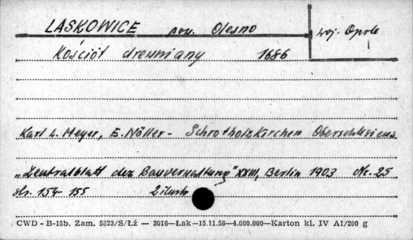 LASKOWICE pow. Olesno woj. Opole
Kościół drewniany 1686
Karl L. Meyer, E. Nöller - Schrotholzkirchen Oberschlesiens
„Zentralblatt der Bauverwaltung" XXIII, Berlin 1903 Nr. 25
str. 154-155 2 ilustr.
CWD - B-15b. Zam. 5823/S/Łź — 3016—Łak—15.11.56—4.000.000—Karton kl. IV A1/200 g